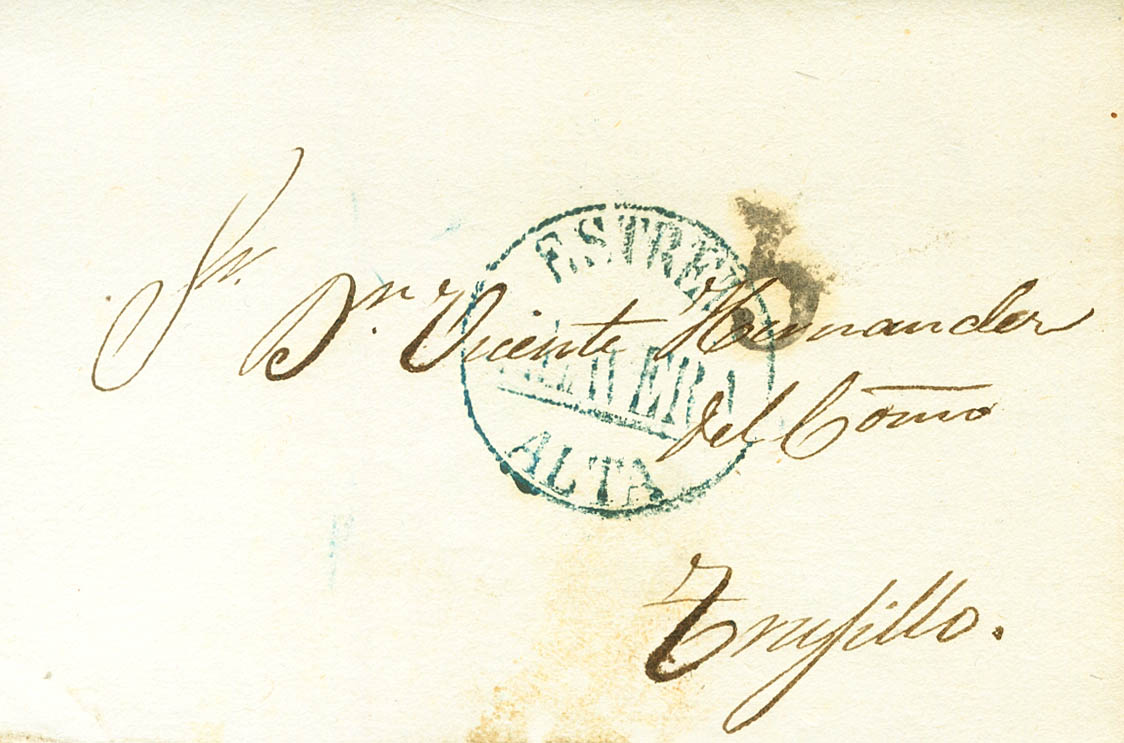 Sr. Dn. Vicente Hernandez
del Como
Trujillo.
ESTREM
TALAVERA
ALTA
5